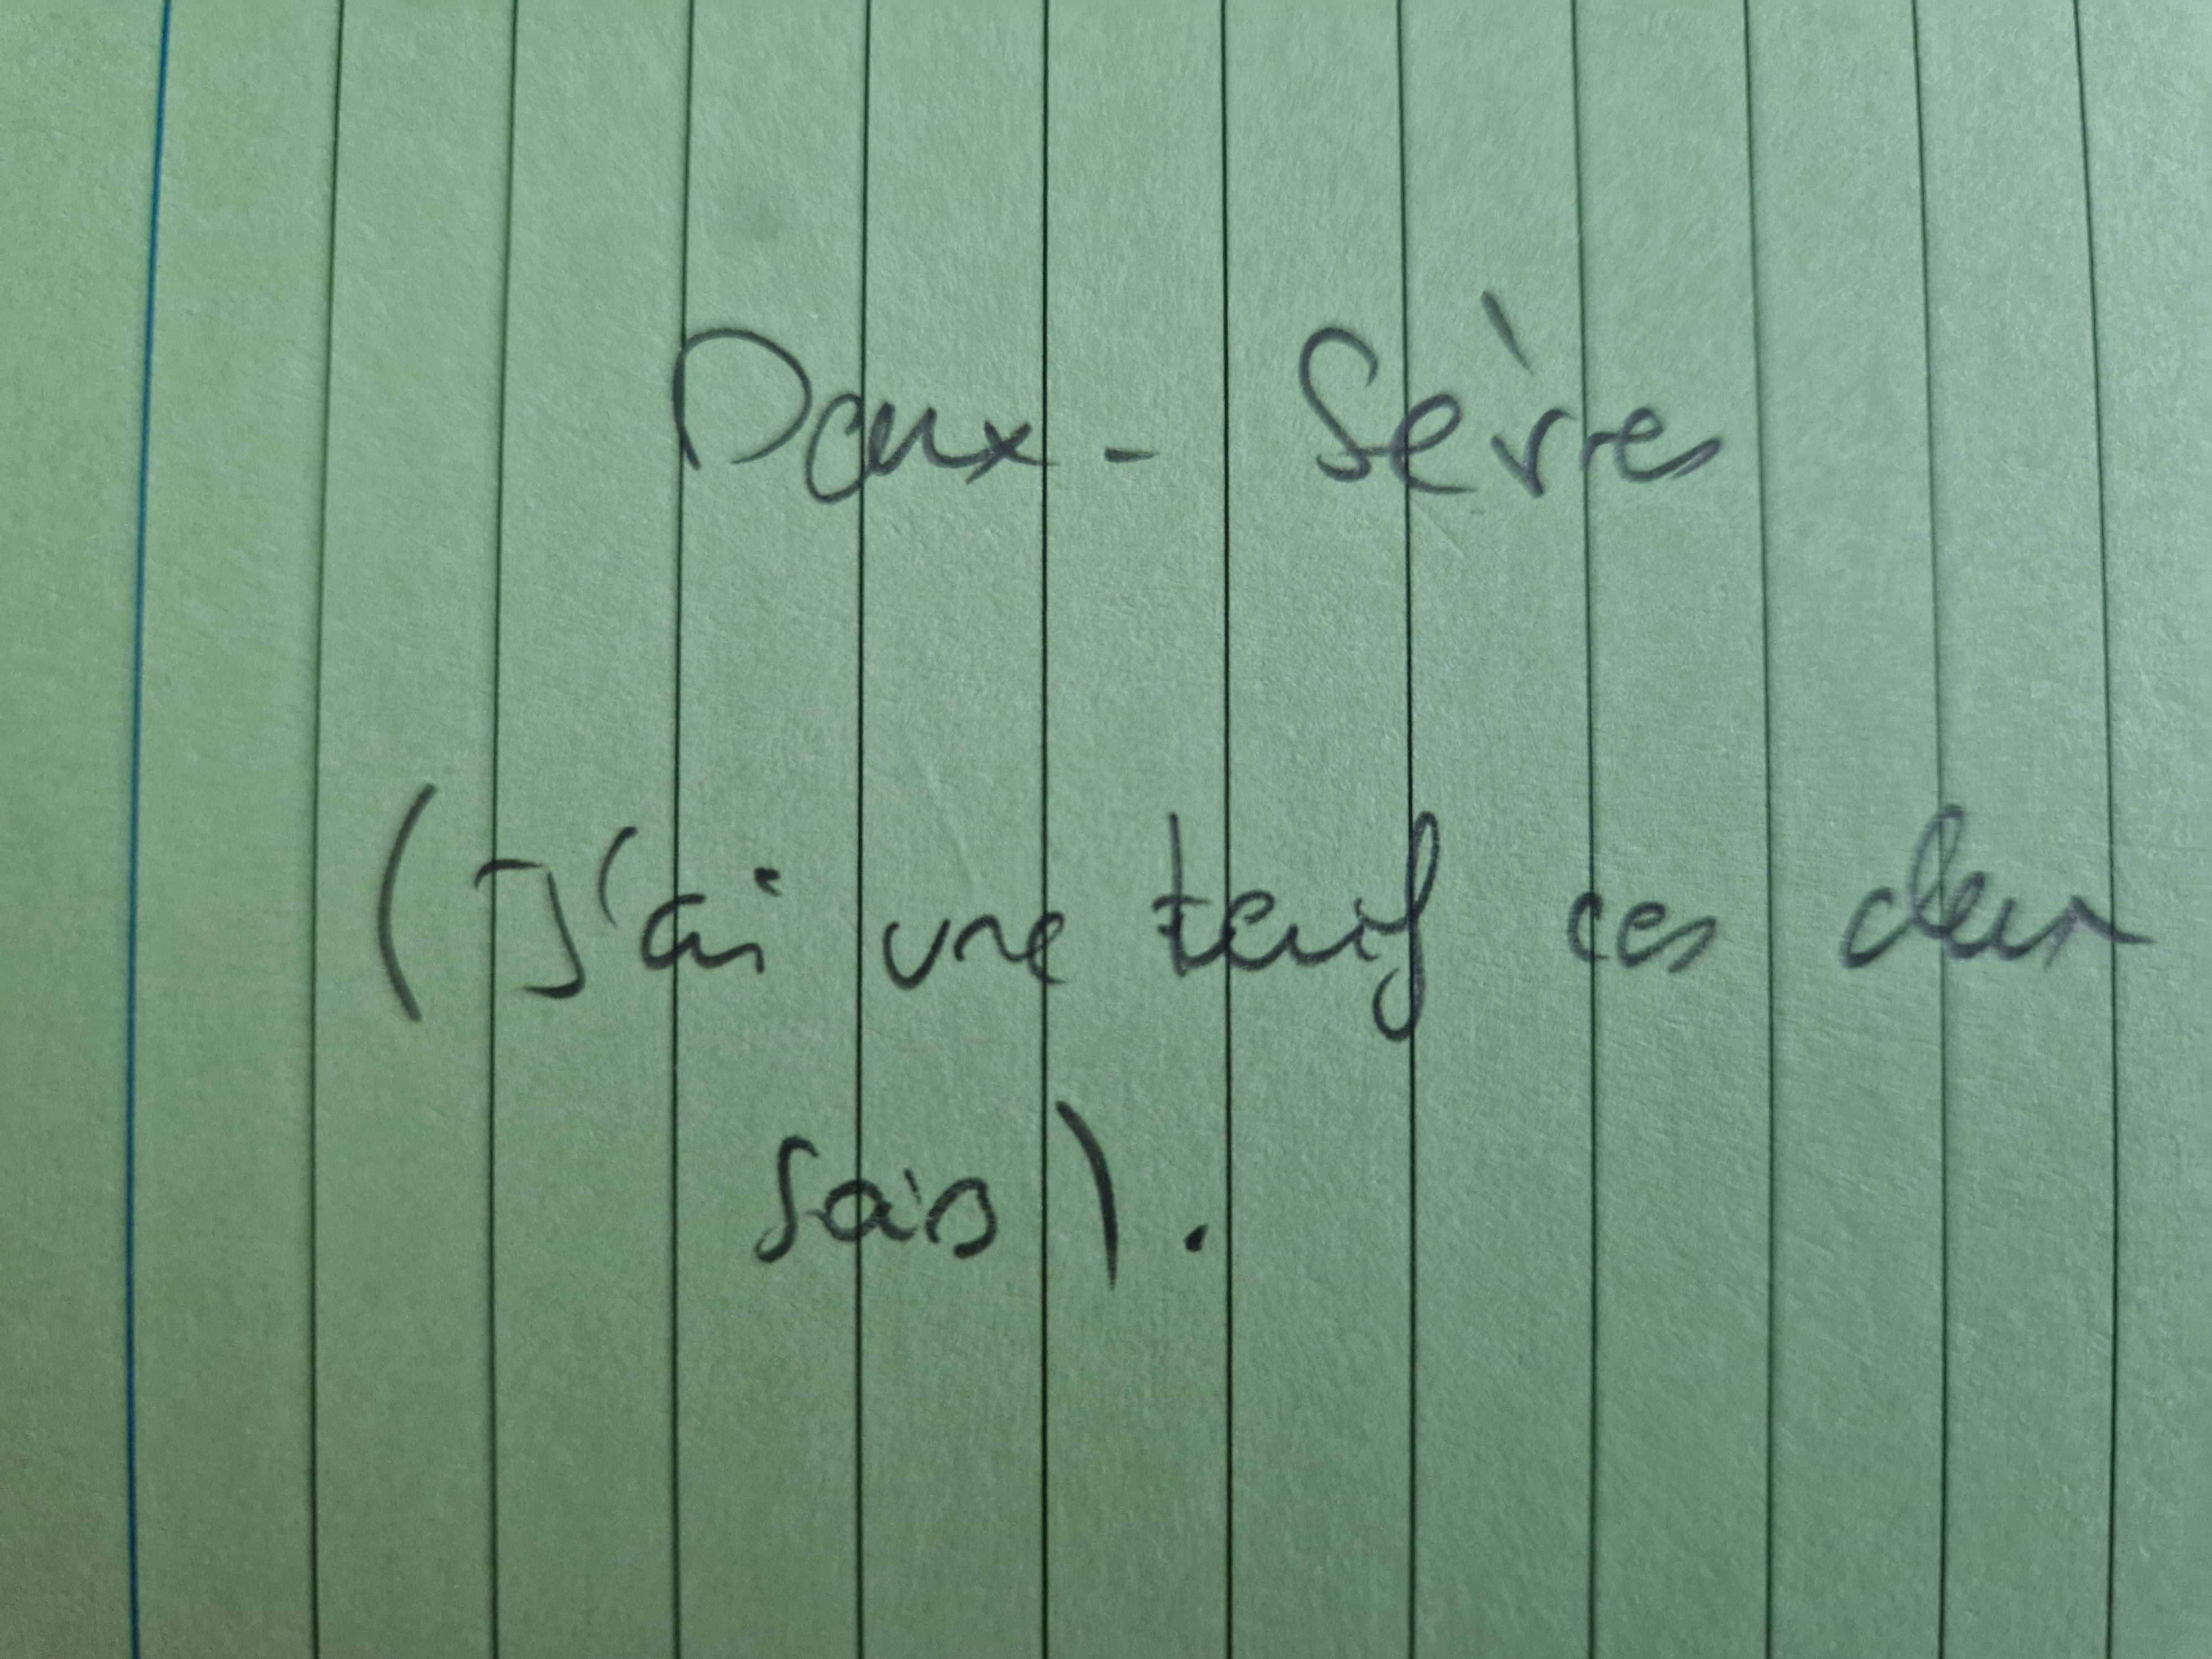 Deux - Sèvres
(J'ai une teuf ces deux
soirs).